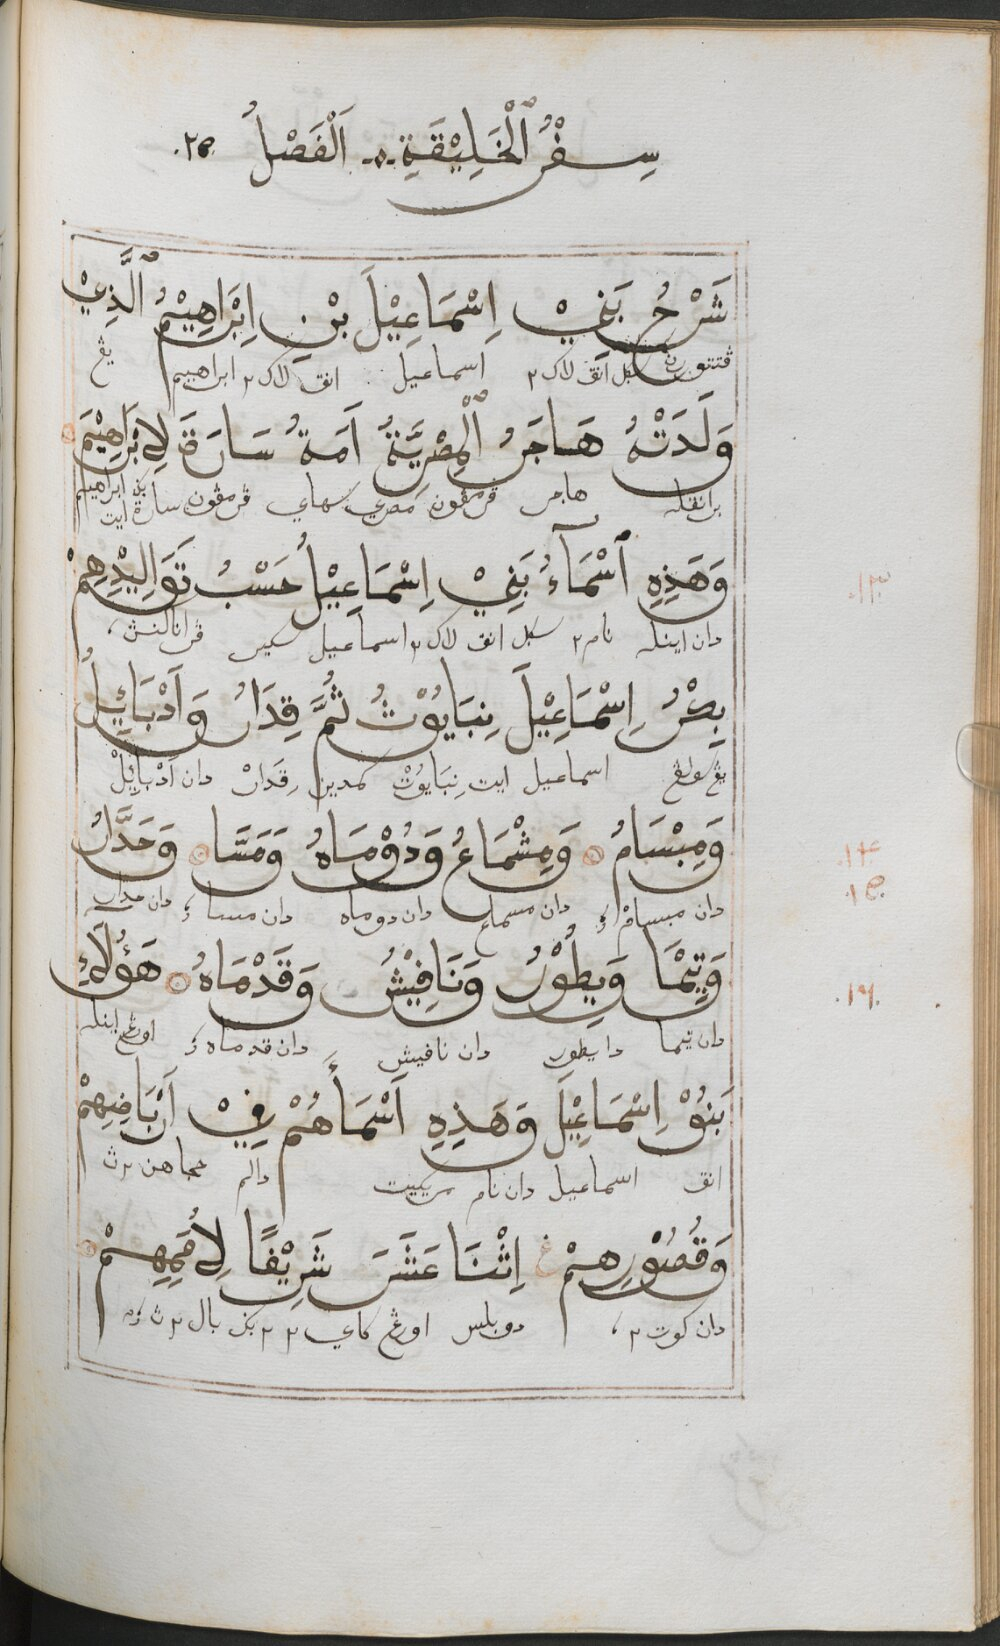 سِفْرُ ٱلْخَلِيْقَةِ ۰٥۰ اَلْفَصْلُ ۲۵
شَرْحُ بَنِيْ اِسْمَاعِيْلَ بْنِ اِبْرَاهِيْمُ ٱلَّذِيْ
سكل انق لاک۲ اسماعيل انق لاک۲ ابراهيم يڠ
وَلَدَتْهُ هَاجَرُ ٱلْمِصْرِيَّةُ اَمَةُ سَارَةَ لِاِبْرَاهِيْمَ
برانقله هاجر ڤرمڤون مصري سهاي ڤرمڤون سارة ايت بكي ابراهيم
وَهَذِهِ ٱسْمَآءُ بَنِيْ اِسْمَاعِيْلُ حَسْبُ تَوَالِيْدِهِمْ
دان اينله نام۲ سكل انق لاک۲ اسماعيل
۱۳
بِكْرُ اِسْمَاعِيْلَ نِبَايُوْثُ ثُمَّ قِدَارُ وَاَدْبَائِيلُ
يڠ سولڠ اسماعيل ايت نِبَايُوْث كمدين قِدَارْ دان اَدْبَائِلْ
وَمِبْسَامُ وَمِشْمَاعُ وَدُوْمَاهُ وَمَسَّا وَحَدَّارُ
دان مبسامْ دان مسماع دان دوماه دان مسا دان حدار
۱۴
۱۵
وَتِيْمَا وَيِطُوْرُ وَنَافِيْشُ وَقَدْمَاهُ هَؤُلَاَءِ
دان تيما دايطور دان نافيش دان قدماه اورڠ اينله
۱٦
بَنُوْ اِسْمَاعِيْلَ وَهَذِهِ اَسْمَأَهُمْ فِيْ اَرْبَاضِهِمْ
انق اسماعيل دان نام مريكيت دالم
وَقُصُوْرِهِمْ اِثْنَا عَشَرَ شَرِيْفًا لِاُمَمِهِمْ
دان كوت۲ دوبلس اورڠ كاي۲